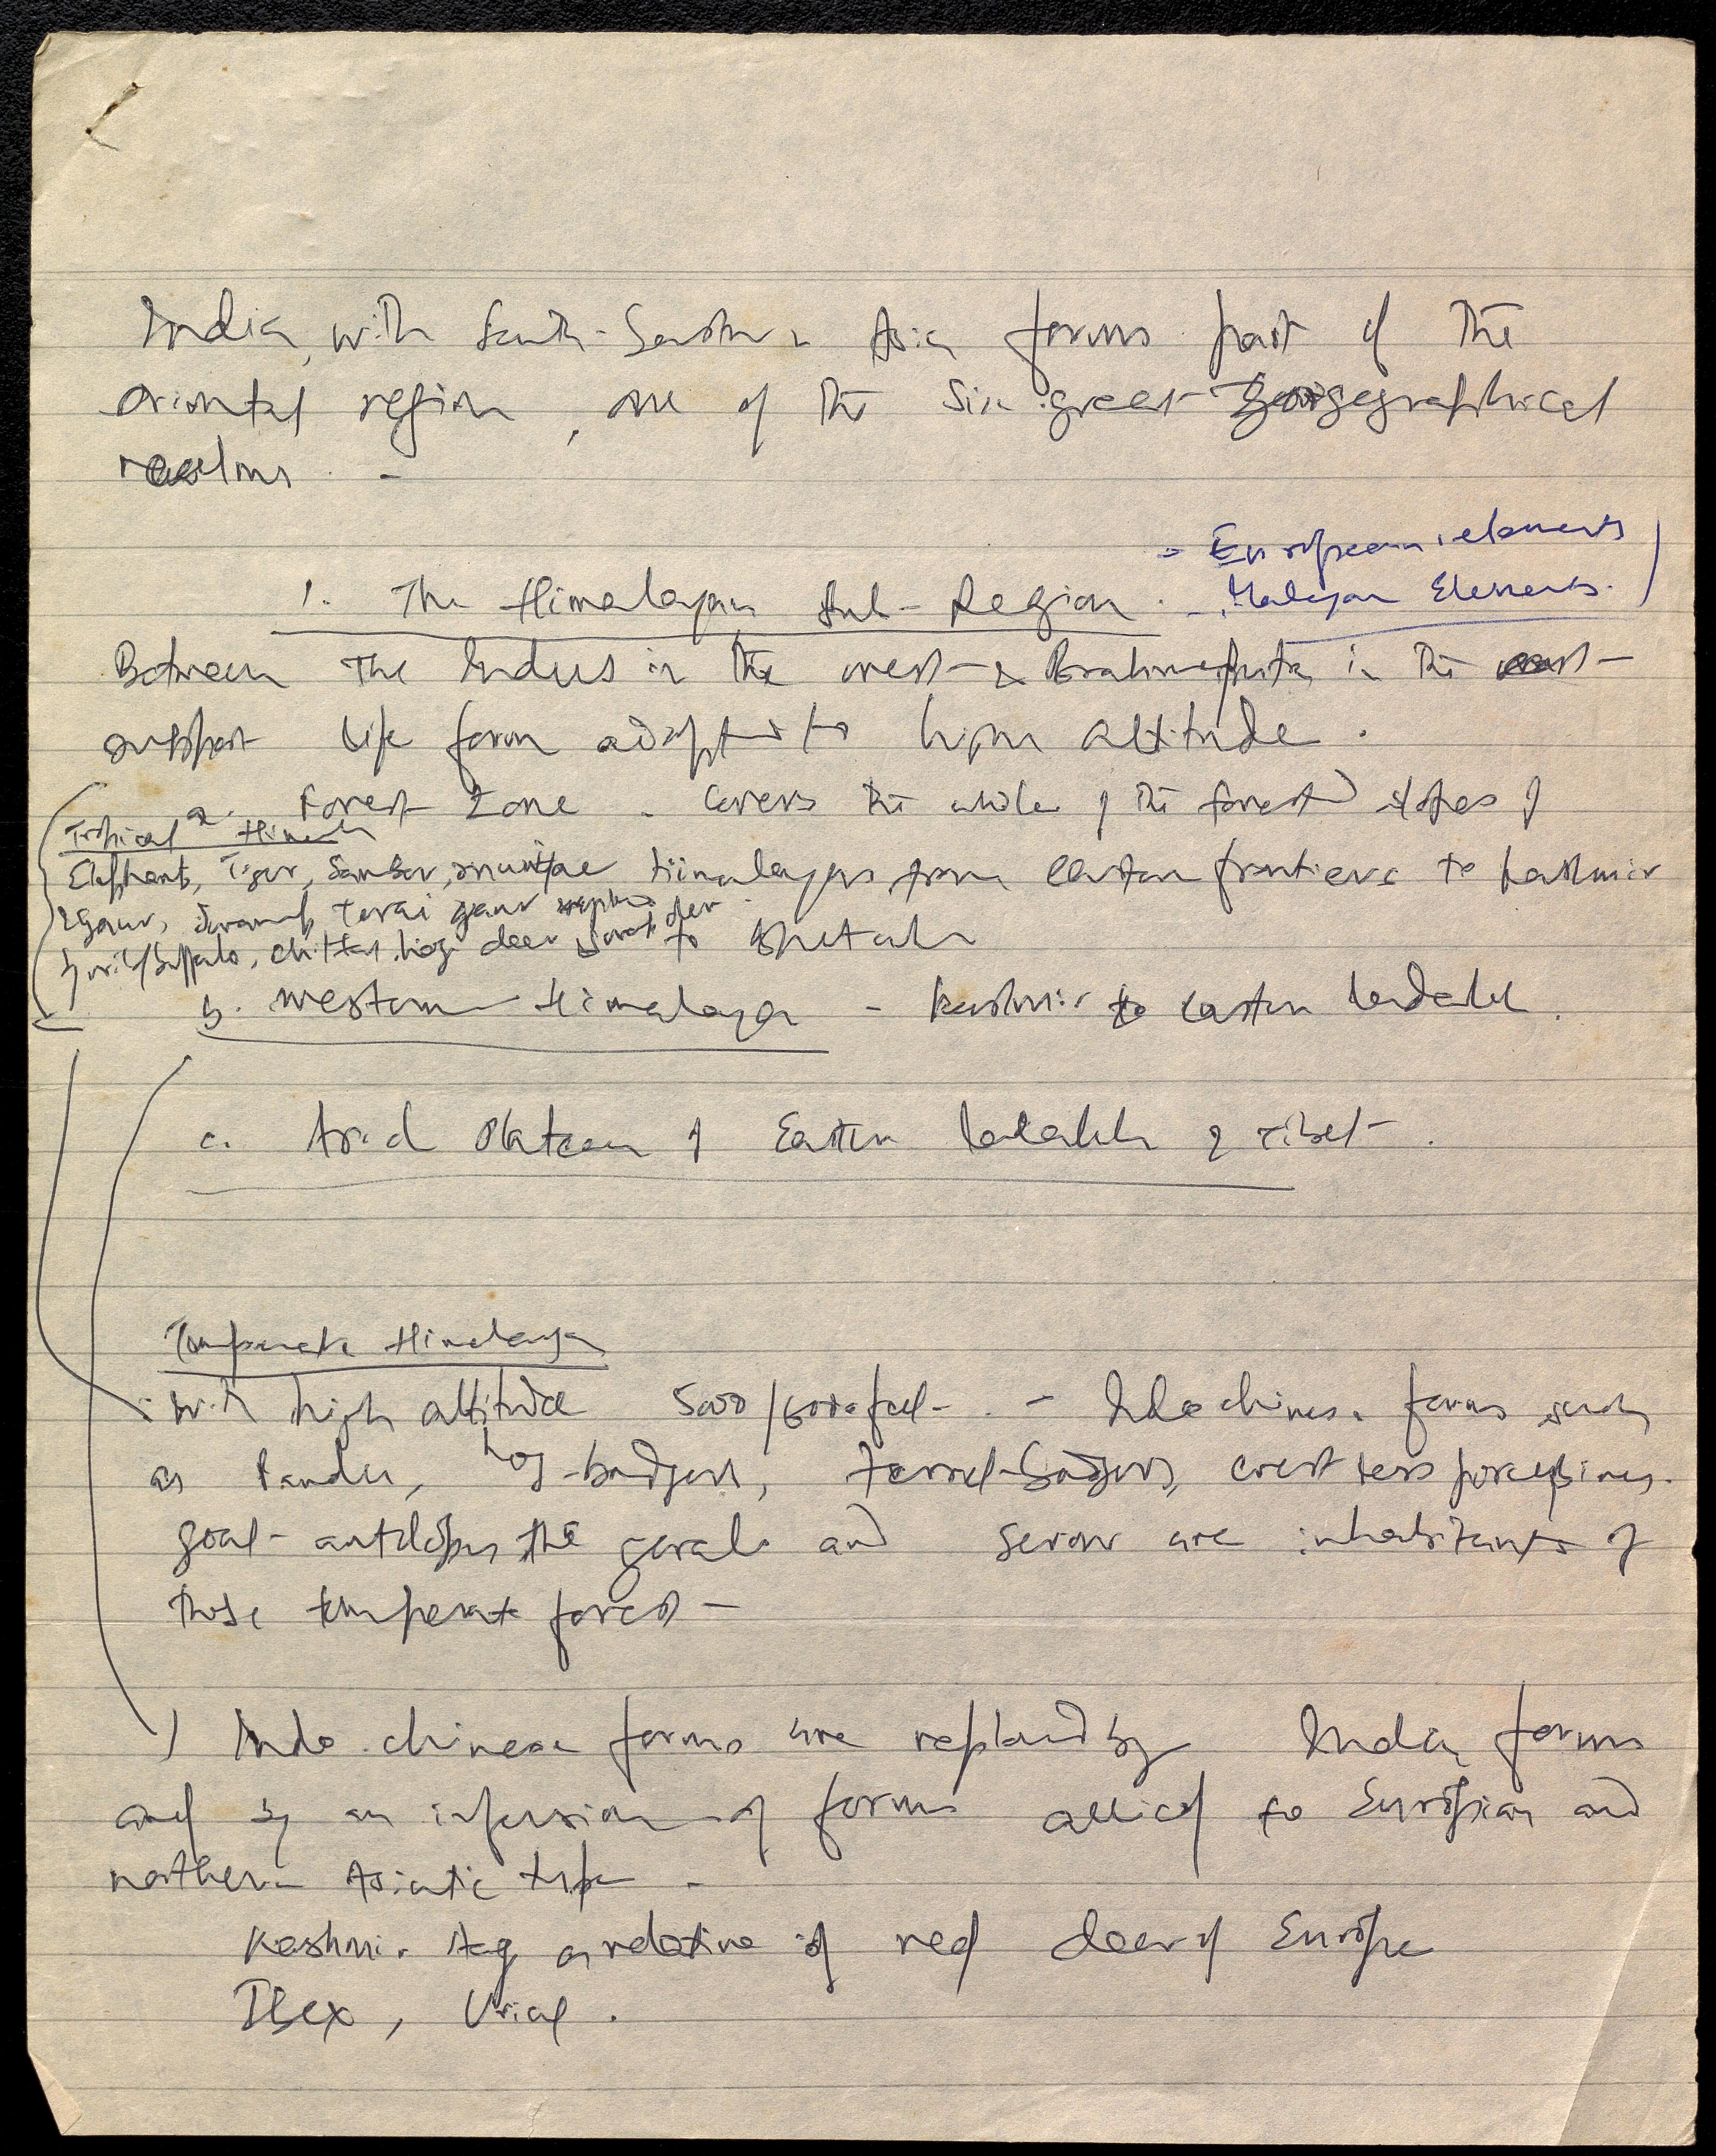 India, with South-Eastern Asia forms part of the
Oriental region, one of the six great Zoogeographical
realms. -
- European elements
1. The Himalayan Sub-Region. - Malayan Elements.
Between the Indus in the west & Brahmaputra in the east
support life form adapted to high altitude.
a. Forest Zone - Covers the whole of the forested slopes of
Tropical Himal
Elephants, Tiger, Sambar, muntjac Himalayas from Eastern frontiers to Kashmir
Gaur, terai gaur replaced
by wild buffalo, chittal, hog deer swamp deer to Bhutan
b. Western Himalaya - Kashmir to Eastern Ladakh.
c. Arid Plateau of Eastern Ladakh & Tibet.
Temperate Himalaya
With high altitude 5000/6000 feet - Indo chinese forms such
as Panda, hog-badgers, Ferret-badgers, crestless porcupines.
goat-antelopes the gorals and serow are inhabitants of
these temperate forest -
) Indo chinese forms are replaced by India forms
and by an infusion of forms allied to European and
nothern Asiatic type -
Kashmir stag a relative of red deer of Europe
Ibex, Urial.